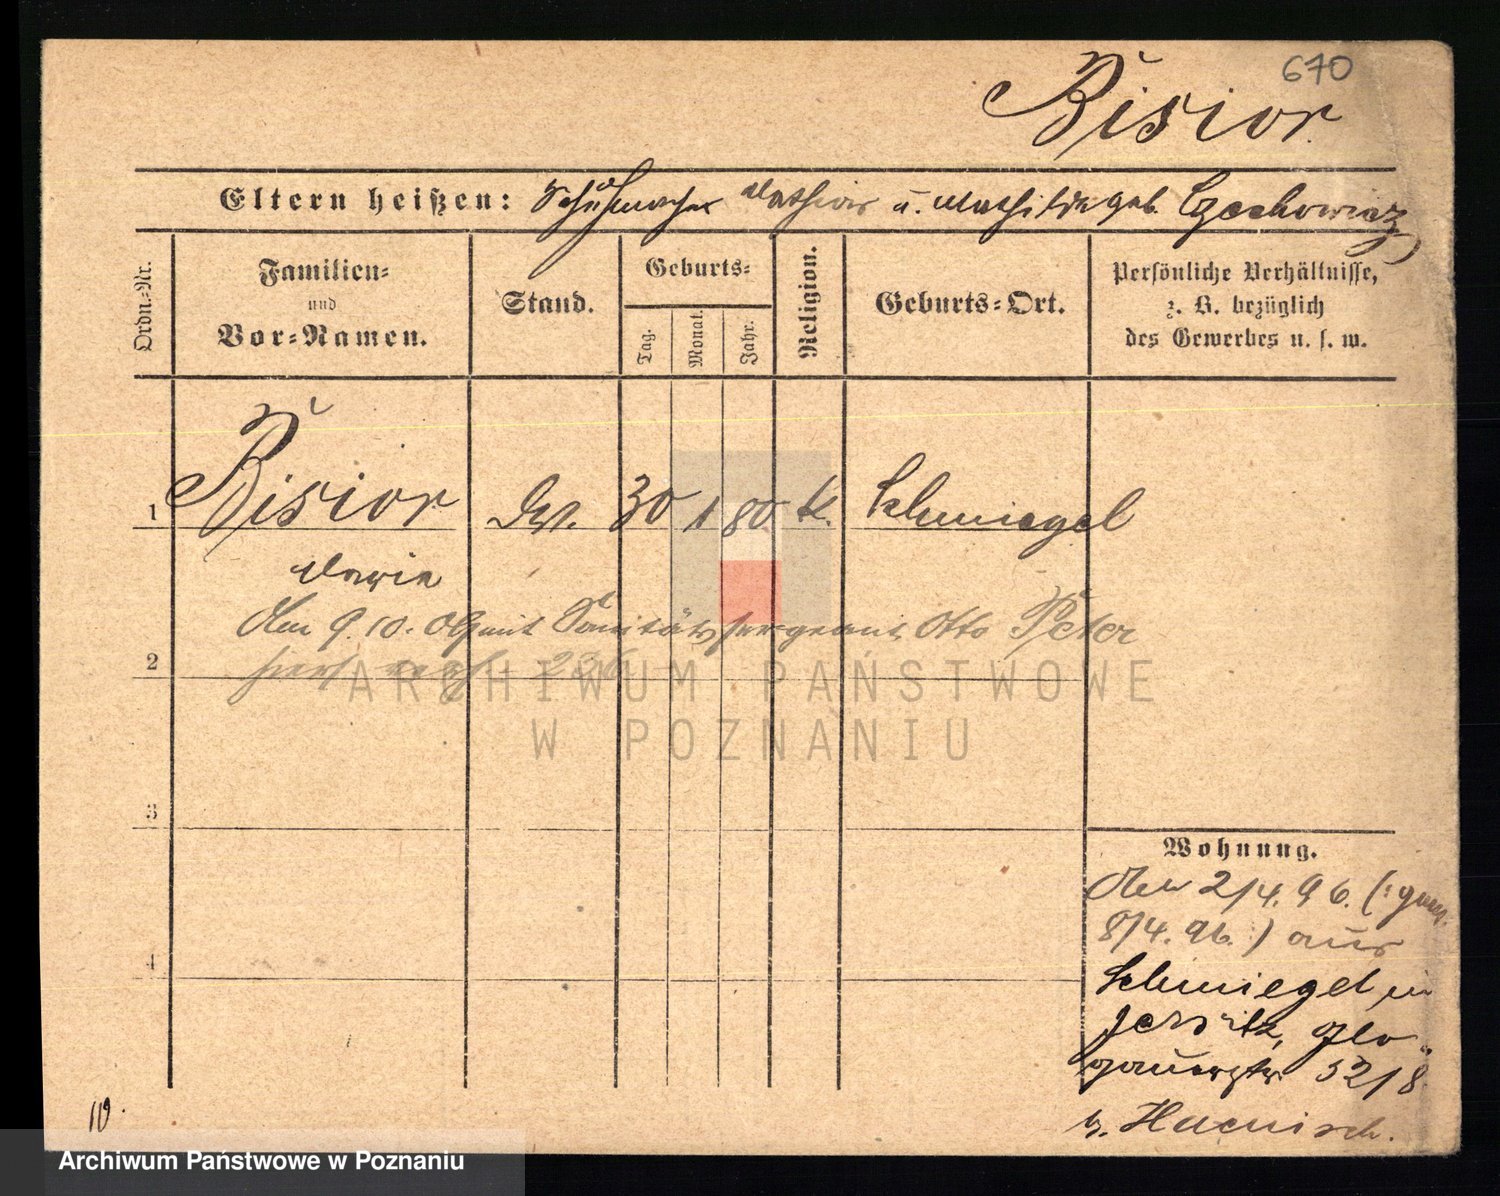 670
Bisior
Eltern heißen: Schuhmacher Mathias u. Mathilde geb. Czechowicz
Ordn.-Nr.
Familien- und Vor-Namen.
Stand.
Geburts-
Tag.
Monat.
Jahr.
Religion.
Geburts-Ort.
Persönliche Verhältnisse,
z. B. bezüglich
des Gewerbes u. s. w.
1 Bisior 30 1 80 k. Schmiegel
Maria
Den 9.10. mit Sanitätssergeant Otto Peter
2
ARCHIWUM PAŃSTWOWE
W POZNANIU
3
4
Wohnung.
Den 2/4. 96. (: gem.
8/4. 96. :) aus
Schmiegel in
Jersitz, Glo-
gauerstr. 52/8
b. Haenisch.
Archiwum Państwowe w Poznaniu